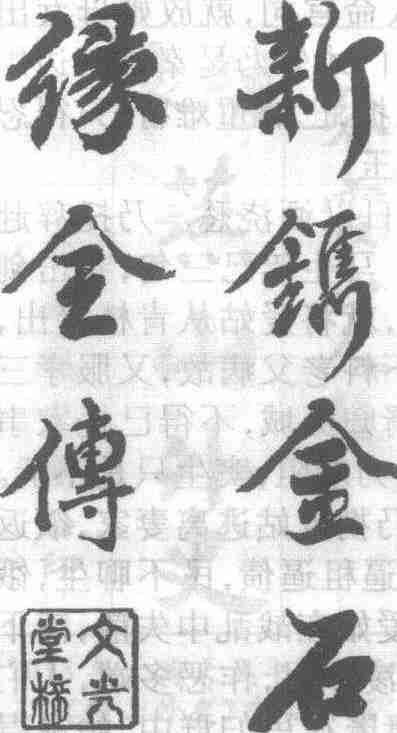 新鐫金石
緣全傳
文光
堂梓